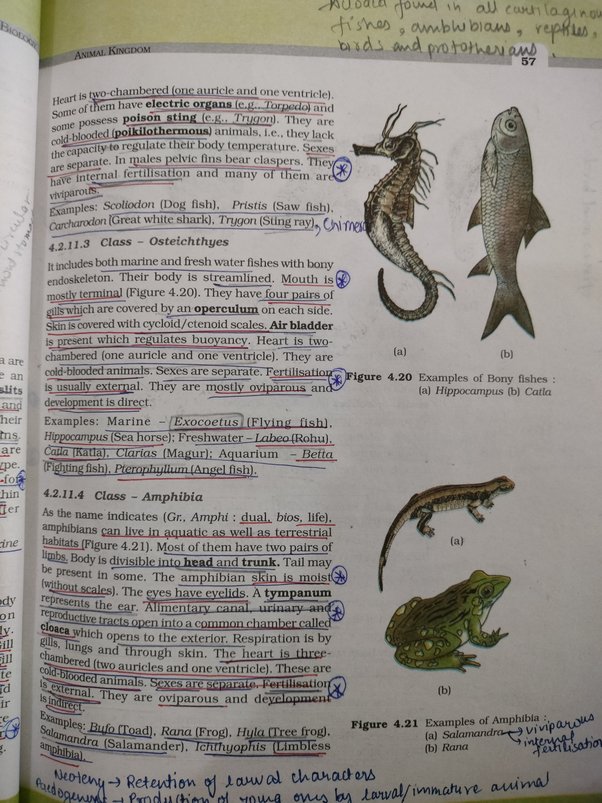 found in all cartilaginous
fishes, amphibians, reptiles,
birds and prototherians.
BIOLOGY
ANIMAL KINGDOM
57
Heart is two-chambered (one auricle and one ventricle).
Some of them have electric organs (e.g., Torpedo) and
some possess poison sting (e.g., Trygon). They are
cold-blooded (poikilothermous) animals, i.e., they lack
the capacity to regulate their body temperature. Sexes
are separate. In males pelvic fins bear claspers. They
have internal fertilisation and many of them are
viviparous.
Examples: Scoliodon (Dog fish), Pristis (Saw fish),
Carcharodon (Great white shark), Trygon (Sting ray), Chimera
4.2.11.3 Class – Osteichthyes
It includes both marine and fresh water fishes with bony
endoskeleton. Their body is streamlined. Mouth is
mostly terminal (Figure 4.20). They have four pairs of
gills which are covered by an operculum on each side.
Skin is covered with cycloid/ctenoid scales. Air bladder
is present which regulates buoyancy. Heart is two-
chambered (one auricle and one ventricle). They are
cold-blooded animals. Sexes are separate. Fertilisation
is usually external. They are mostly oviparous and
development is direct.
Examples: Marine – Exocoetus (Flying fish),
Hippocampus (Sea horse); Freshwater – Labeo (Rohu),
Catla (Katla), Clarias (Magur); Aquarium – Betta
(Fighting fish), Pterophyllum (Angel fish).
(a)
(b)
Figure 4.20 Examples of Bony fishes :
(a) Hippocampus (b) Catla
4.2.11.4 Class – Amphibia
As the name indicates (Gr., Amphi : dual, bios, life),
amphibians can live in aquatic as well as terrestrial
habitats (Figure 4.21). Most of them have two pairs of
limbs. Body is divisible into head and trunk. Tail may
be present in some. The amphibian skin is moist
(without scales). The eyes have eyelids. A tympanum
represents the ear. Alimentary canal, urinary and
reproductive tracts open into a common chamber called
cloaca which opens to the exterior. Respiration is by
gills, lungs and through skin. The heart is three-
chambered (two auricles and one ventricle). These are
cold-blooded animals. Sexes are separate. Fertilisation
is external. They are oviparous and development
is indirect.
Examples: Bufo (Toad), Rana (Frog), Hyla (Tree frog),
Salamandra (Salamander), Ichthyophis (Limbless
amphibia).
(a)
(b)
Figure 4.21 Examples of Amphibia :
(a) Salamandra → viviparous
→ internal fertilisation
(b) Rana
Neoteny → Retention of larval characters
Paedogenesis → Production of young ones by larval/immature animal